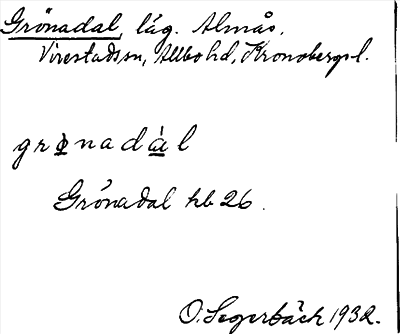 Grönadal, läg. Almås,
Virestads sn, Allbo hd, Kronobergs l.
grònadàl
Grönadal hb 26.
O. Segerbäck 1932.